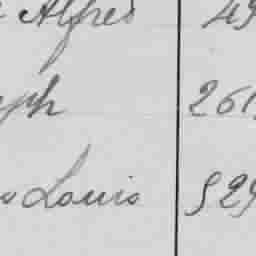 Alfred 49
eph 261
s Louis 529